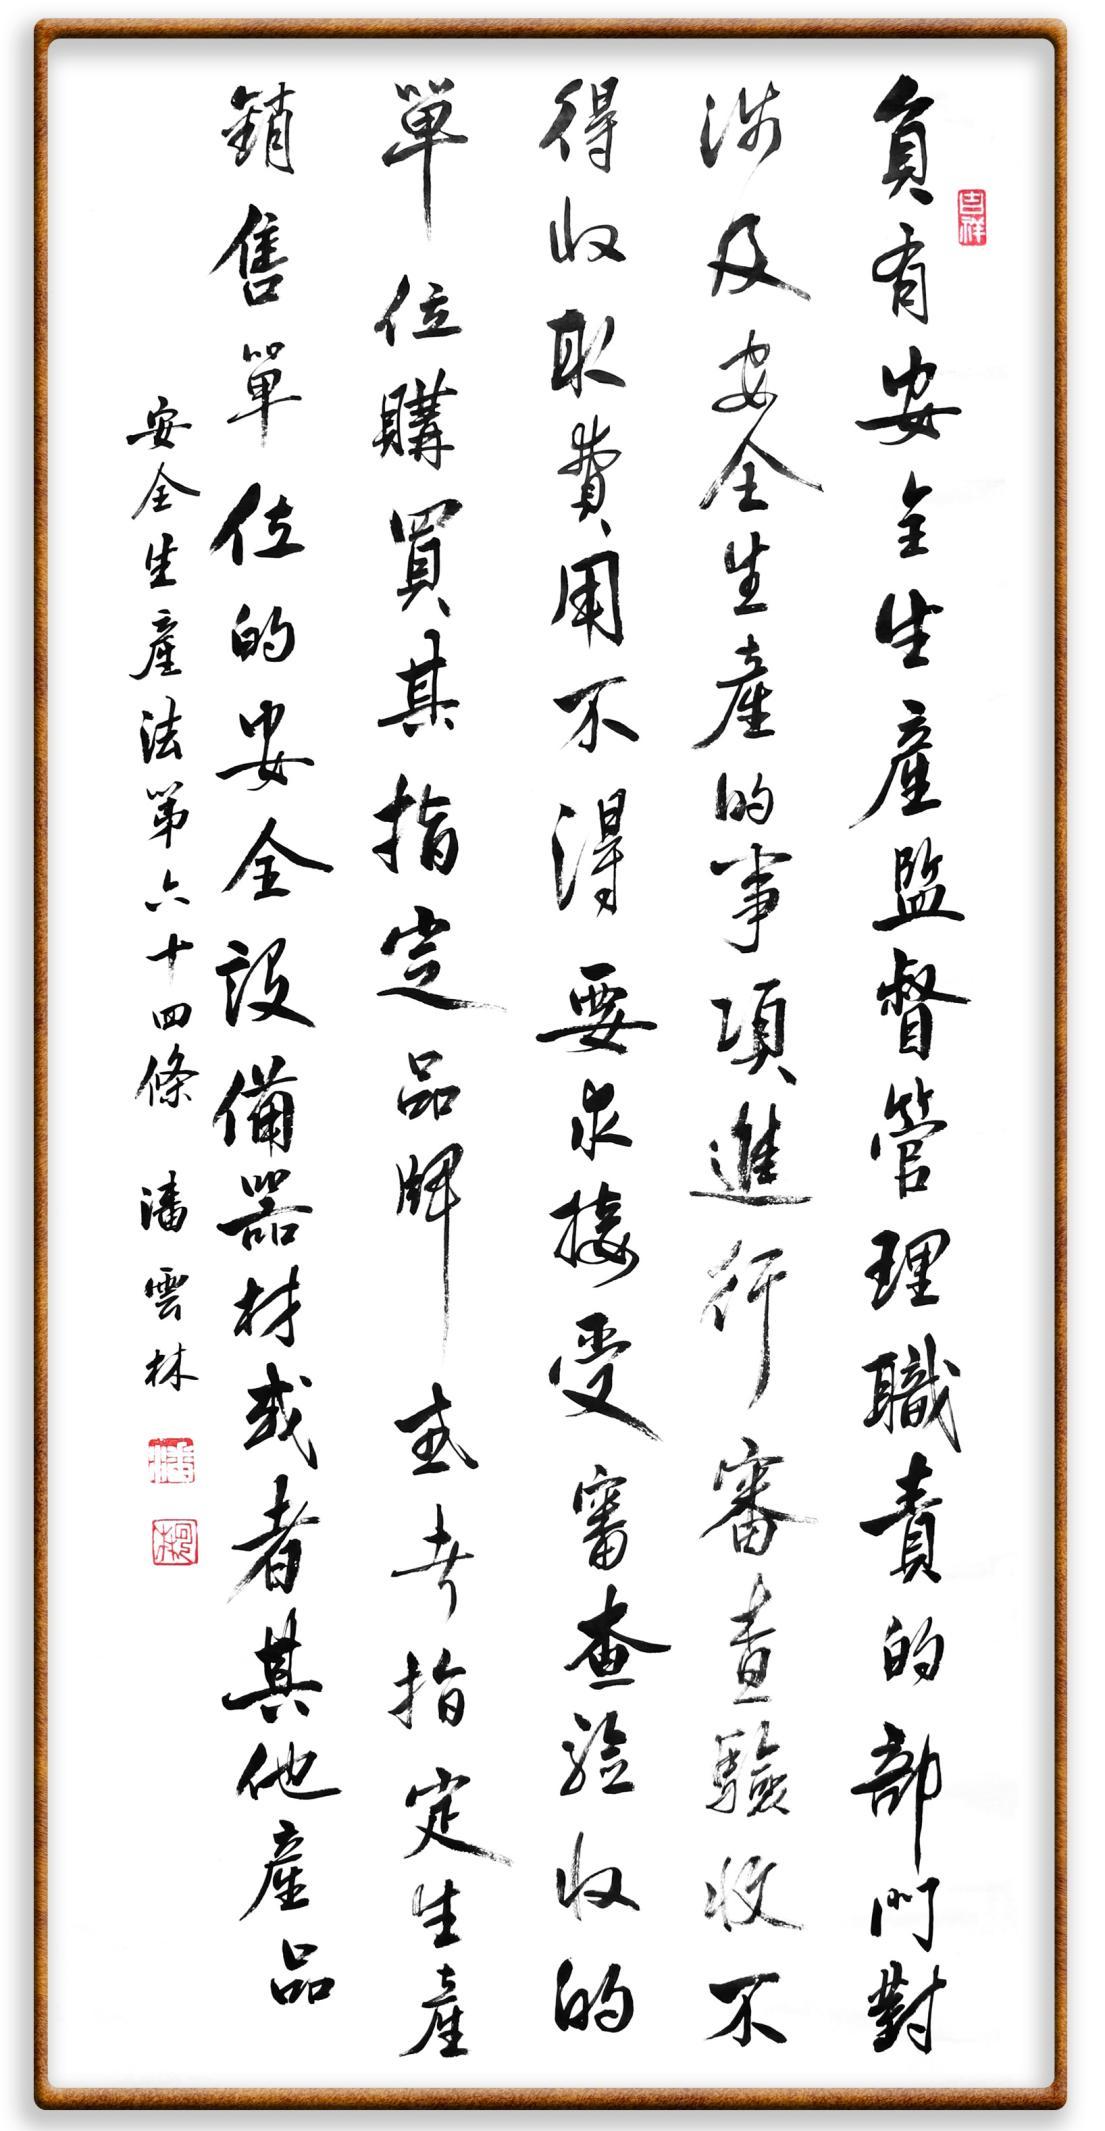 吉祥
負有安全生產監督管理職責的部門對
涉及安全生產的事項進行審查驗收不
得收取費用不得要求接受審查验收的
單位購買其指定品牌或者指定生產
銷售單位的安全設備器材或者其他產品
安全生產法第六十四條 潘雲林